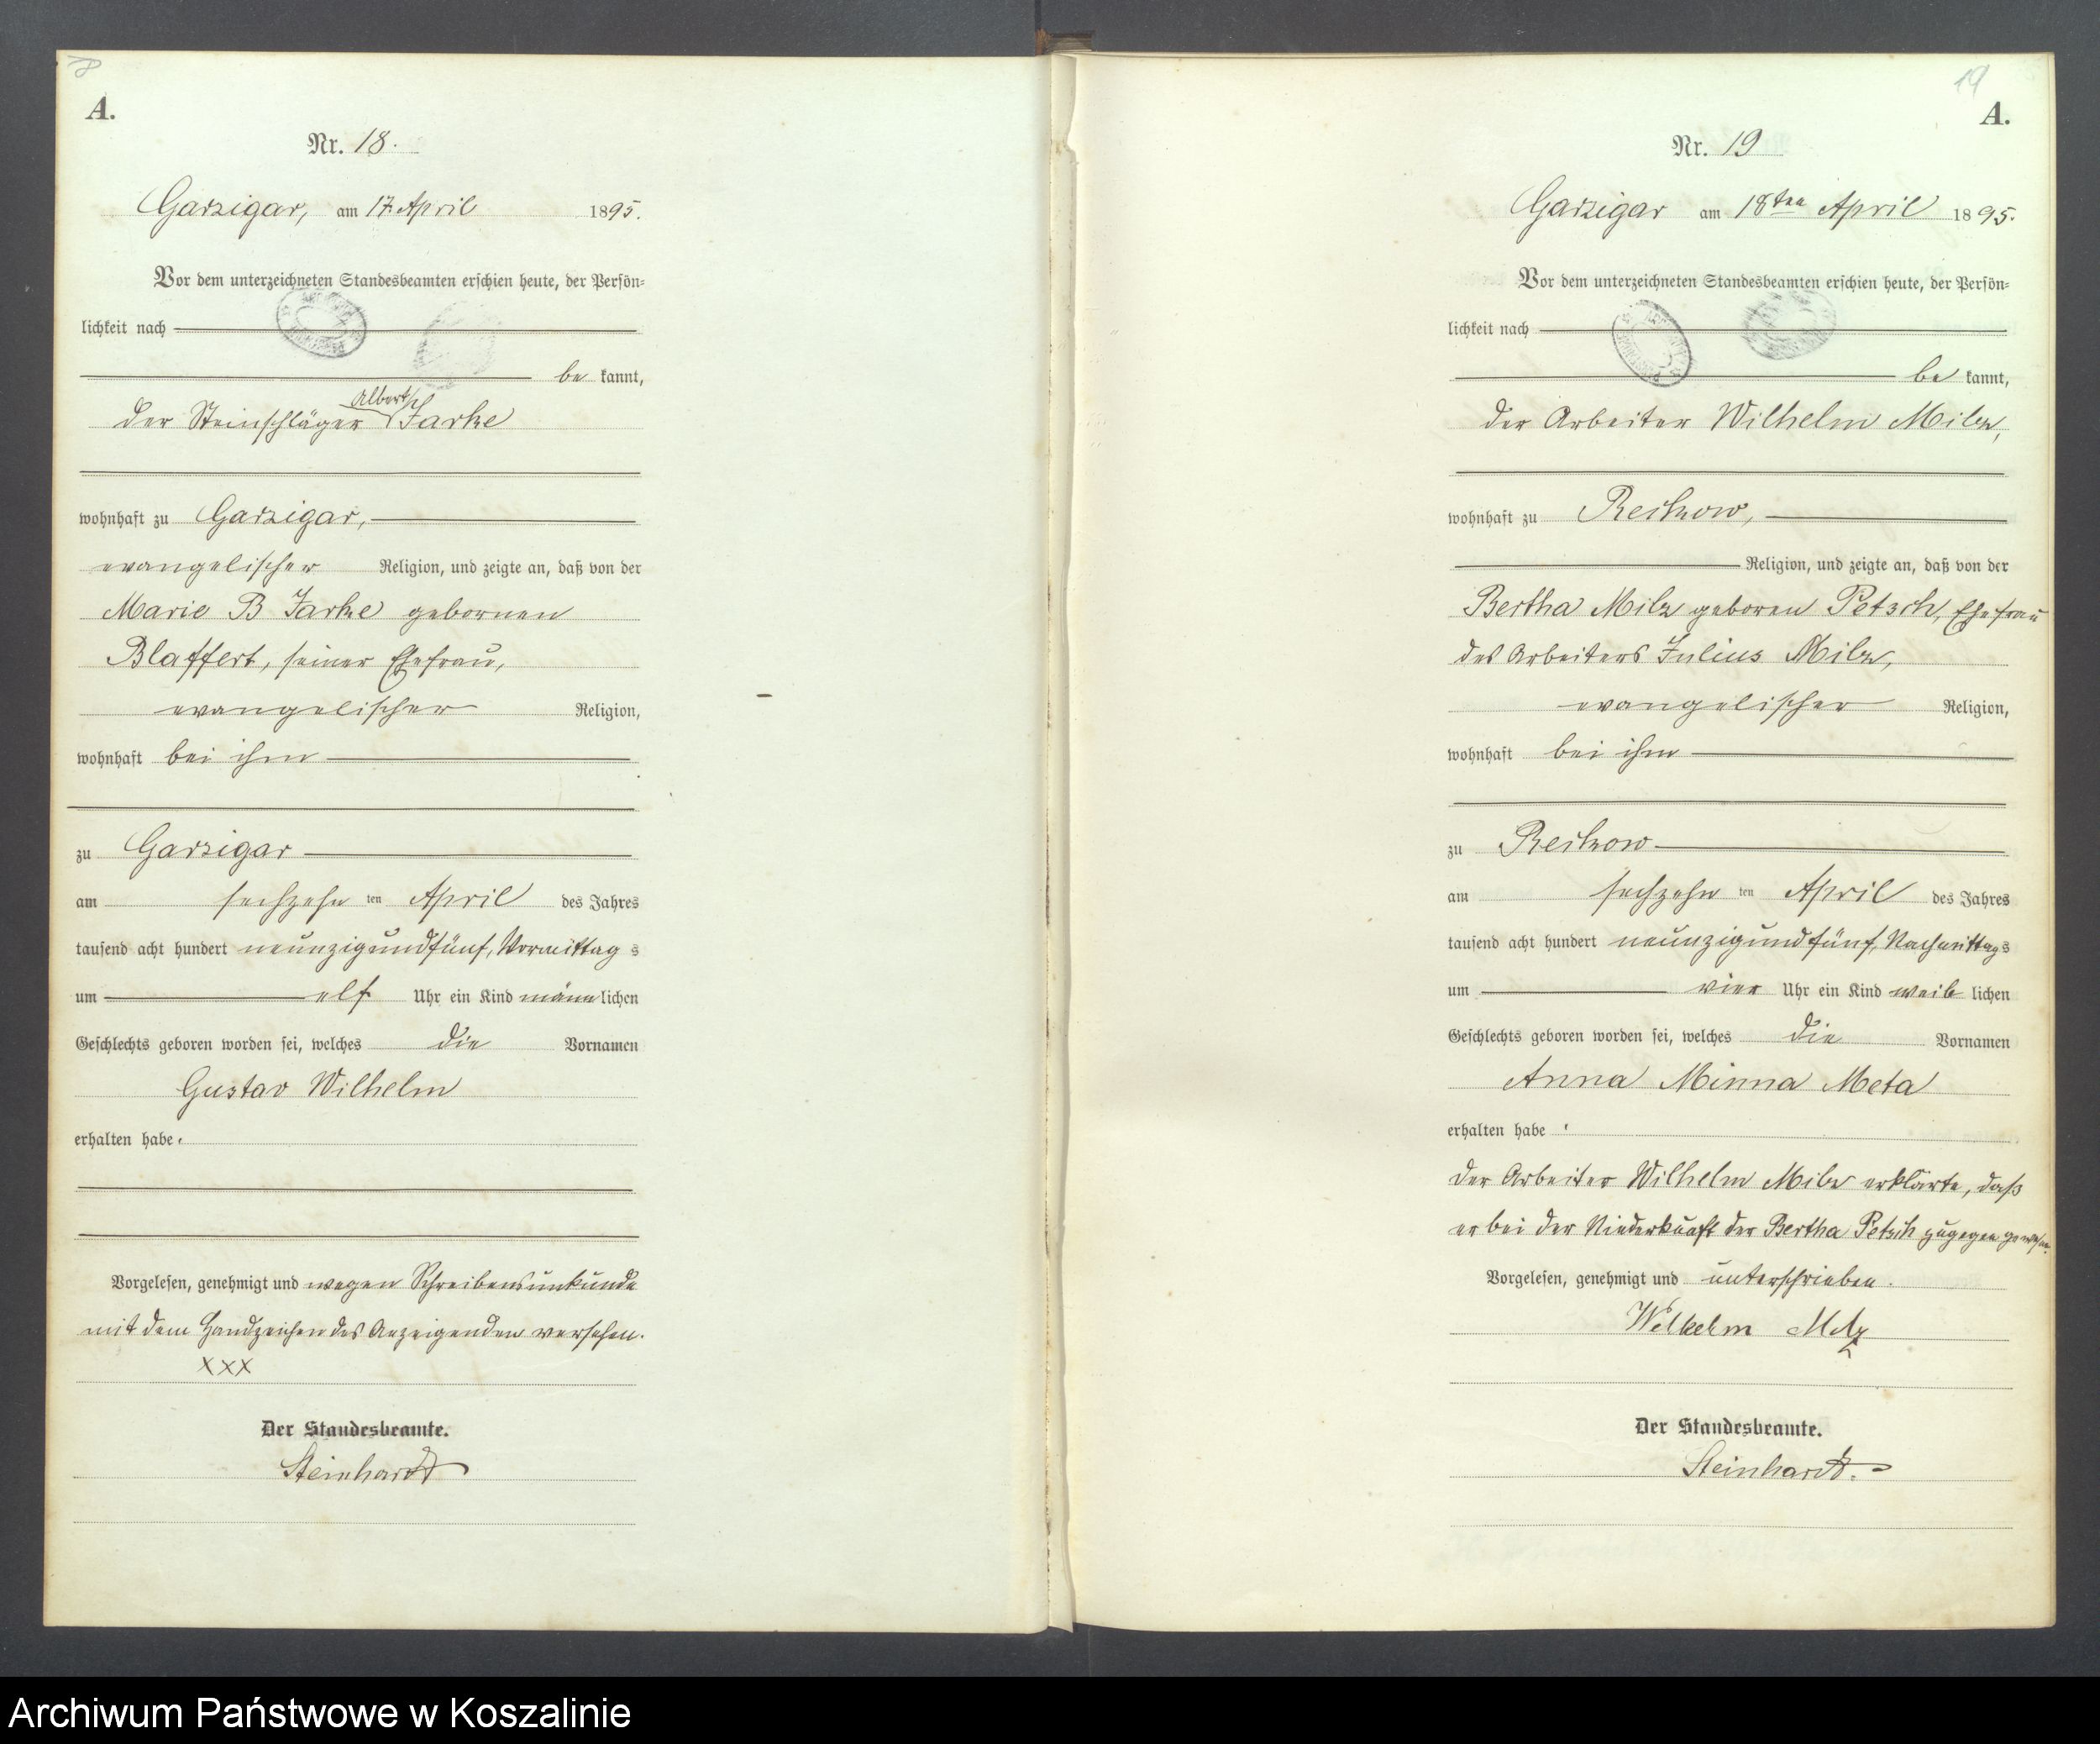 A.
Nr. 18.
Garzigar, am 17. April 1895.
Vor dem unterzeichneten Standesbeamten erschien heute, der Persön-
lichkeit nach
be kannt,
Albert
der Steinschläger Jarke
wohnhaft zu Garzigar,
evangelischer Religion, und zeigte an, daß von der
Marie B Jarke gebornen
Blaffert, seiner Ehefrau,
evangelischer Religion,
wohnhaft bei ihm
zu Garzigar
am sechzehn ten April des Jahres
tausend acht hundert neunzigundfünf, Vormittag s
um elf Uhr ein Kind männ lichen
Geschlechts geboren worden sei, welches die Vornamen
Gustav Wilhelm
erhalten habe.
Vorgelesen, genehmigt und wegen Schreibensunkunde
mit dem Handzeichen des Anzeigenden versehen.
XXX
Der Standesbeamte.
Steinhardt
19
A.
Nr. 19
Garzigar am 18ten April 1895.
Vor dem unterzeichneten Standesbeamten erschien heute, der Persön-
lichkeit nach
be kannt,
der Arbeiter Wilhelm Milz,
wohnhaft zu Reckow,
Religion, und zeigte an, daß von der
Bertha Milz geboren Petsch, Ehefrau
des Arbeiters Julius Milz,
evangelischer Religion,
wohnhaft bei ihm
zu Reckow
am sechzehn ten April des Jahres
tausend acht hundert neunzigundfünf, Nachmittag s
um vier Uhr ein Kind weib lichen
Geschlechts geboren worden sei, welches die Vornamen
Anna Minna Meta
erhalten habe.
Der Arbeiter Wilhelm Milz erklärte, daß
er bei der Niederkunft der Bertha Petsch zugegen gewesen.
Vorgelesen, genehmigt und unterschrieben.
Wilhelm Milz
Der Standesbeamte.
Steinhardt.
Archiwum Państwowe w Koszalinie